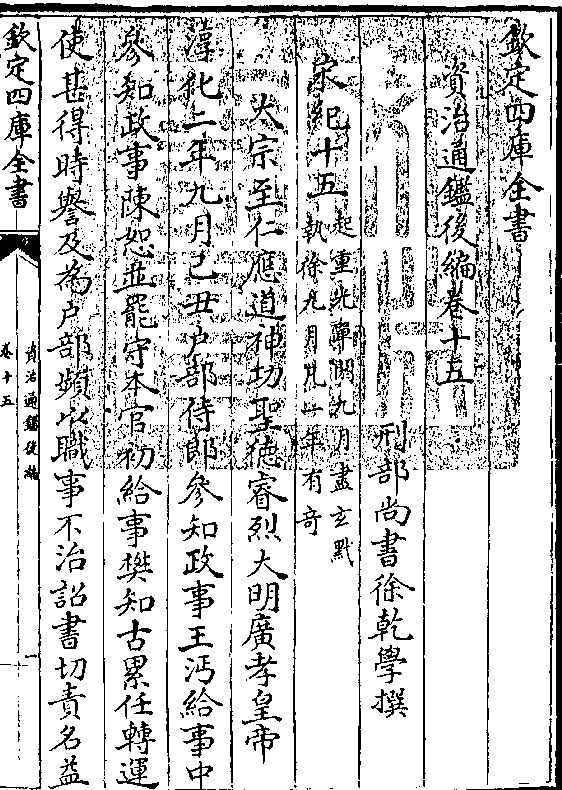 欽定四庫全書
資治通鑑後編卷十五
刑部尚書徐乾學撰
宋紀十五
起重光單閼九月盡玄黓
執徐九月凡一年有奇
太宗至仁應道神功聖德睿烈大明廣孝皇帝
淳化二年九月己丑户部侍郎參知政事王沔給事中
參知政事陳恕並罷守本官初給事樊知古累任轉運
使甚得時譽及為户部頻以職事不治詔書切責名益
欽定四庫全書
資治通鑑後編
卷十五
一